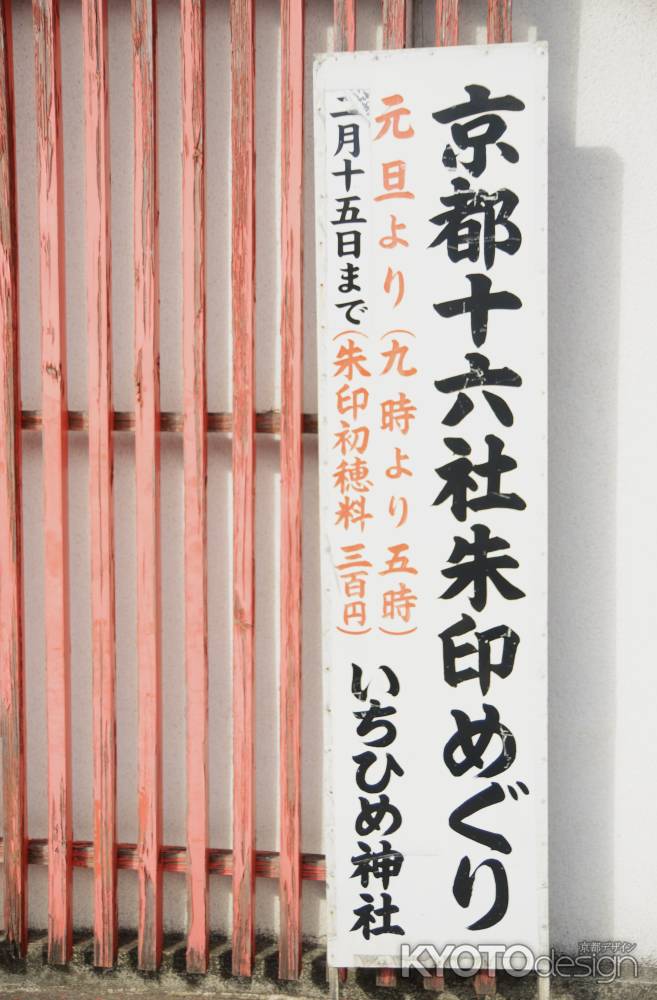 京都十六社朱印めぐり
元旦より(九時より五時)
二月十五日まで(朱印初穂料 三百円)
いちひめ神社
京都デザイン
KYOTOdesign